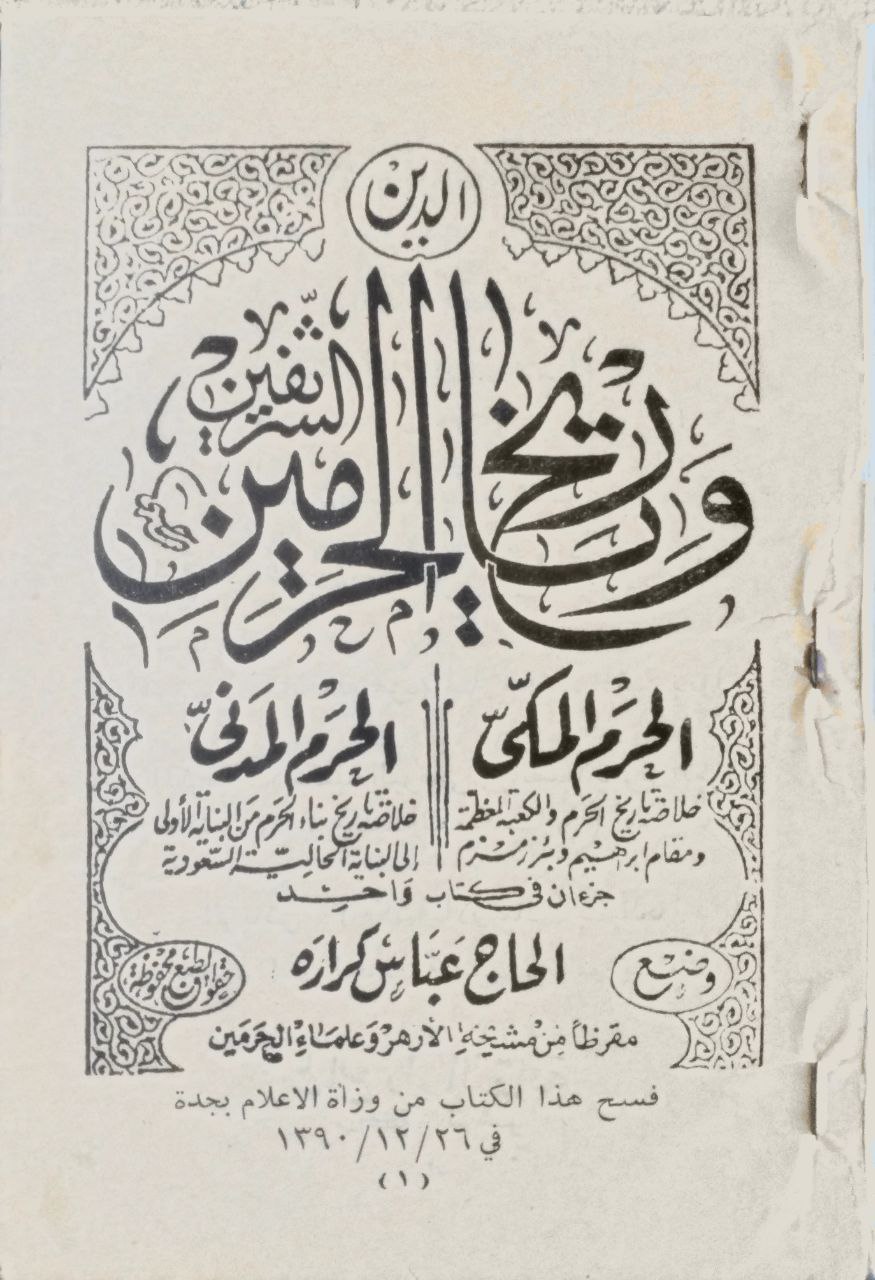 الدين
وتاريخ الحرمين الشريفين
الحرم المكيّ
خلاصة تاريخ الحرم والكعبة المعظمة
ومقام ابرهسيم وبئر زمزم
الحرم المدنيّ
خلاصة تاريخ بناء الحرم من البناية الأولى
إلى البناية الحالية السعودية
جزءان في كتاب واحد
وضع
الحاج عباس كراره
حقوق الطبع محفوظة
مقرظاً من مشيخة الأزهر وعلماء الحرمين
فسح هذا الكتاب من وزاة الاعلام بجدة
في ٢٦/١٢/١٣٩٠
(١)